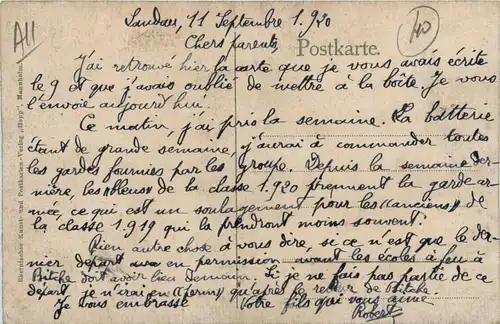 All
Landau, 11 Septembre 1.920
40
Chers parents,
Postkarte.
J'ai retrouvé hier la carte que je vous avais écrite
le 9 et que j'avais oublié de mettre à la boîte. Je vous
l'envoie aujourd'hui.
Ce matin, j'ai pris la semaine. La batterie
étant de grande semaine, j'aurai à commander toutes
les gardes fournies par les groupe. Depuis la semaine der-
nière, les "bleus" de la classe 1.920 prennent la garde ar-
mée, ce qui est un soulagement pour les "anciens" de
la classe 1.919 qui la prendront moins souvent.
Rien autre chose à vous dire, si ce n'est que le der-
nier départ en permission avant les écoles à feu à
Bitche doit avoir lieu demain. Si je ne fais pas partie de ce
départ je n'irai en "perm" qu'après le retour de Bitche
Je vous embrasse Votre fils qui vous aime
Robert
Rheinischer Kunst- und Postkarten-Verlag „Hepp", Mannheim.